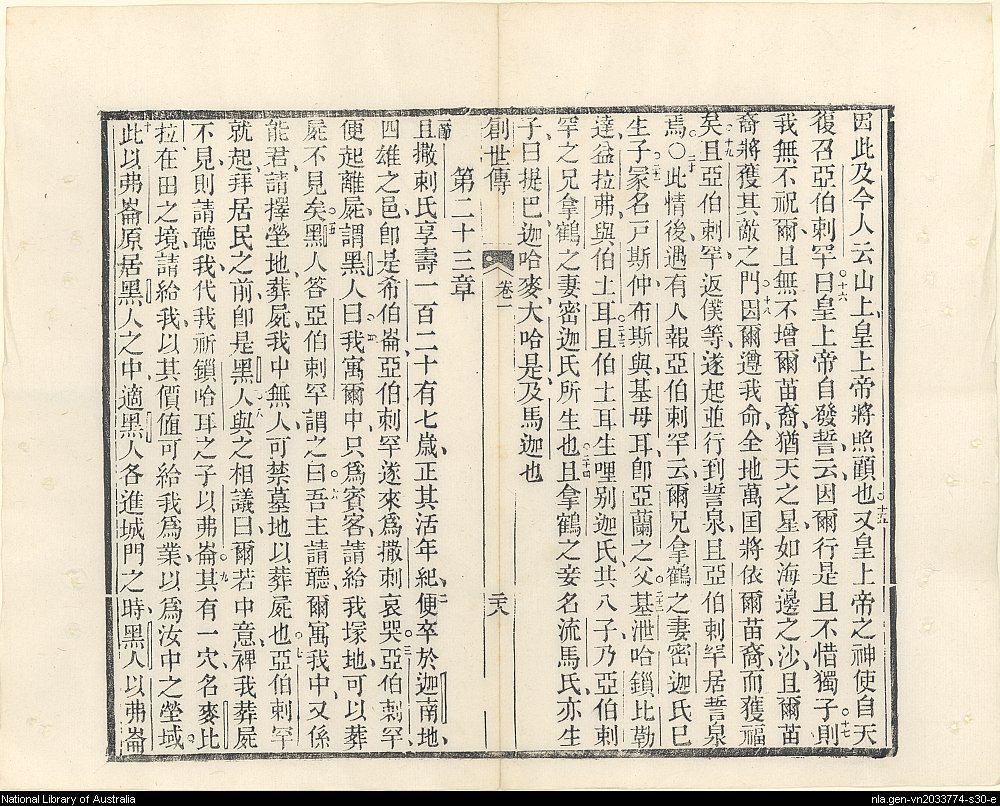 因此及今人云山上皇上帝將照顧也十五又皇上帝之神使自天
復召亞伯剌罕十六曰皇上帝自發誓云因爾行是且不惜獨子十七則
我無不祝爾且無不增爾苗裔猶天之星如海邊之沙且爾苗
裔將獲其敵之門十八因爾遵我命全地萬国將依爾苗裔而獲福
矣十九且亞伯剌罕返僕等遂起並行到誓泉且亞伯剌罕居誓泉
焉○二十此情後遇有人報亞伯剌罕云爾兄拿鶴之妻密迦氏已
生子二十一冢名戸斯仲布斯與基母耳卽亞蘭之父二十二基泄哈鎖比勒
達益拉弗與伯土耳二十三且伯土耳生哩别迦氏其八子乃亞伯剌
罕之兄拿鶴之妻密迦氏所生也二十四且拿鶴之妾名流馬氏亦生
子曰提巴迦哈麥大哈是及馬迦也
創世傳 卷一 二十八
第二十三章
一節且撒剌氏享壽一百二十有七歲正其活年紀二便卒於迦南地
四雄之邑卽是希伯崙亞伯剌罕遂來爲撒剌哀哭三亞伯剌罕
便起離屍謂黑人曰四我寓爾中只爲賓客請給我塚地可以葬
屍不見矣五黑人答亞伯剌罕謂之曰六吾主請聽爾寓我中又係
能君請擇塋地葬屍我中無人可禁墓地以葬屍也七亞伯剌罕
就起拜居民之前卽是黑人八與之相議曰爾若中意裨我葬屍
不見則請聽我代我祈鎖哈耳之子以弗崙九其有一穴名麥比
拉在田之境請給我以其價值可給我爲業以爲汝中之塋域
十此以弗崙原居黑人之中適黑人各進城門之時黑人以弗崙
National Library of Australia
nla.gen-vn2033774-s30-e